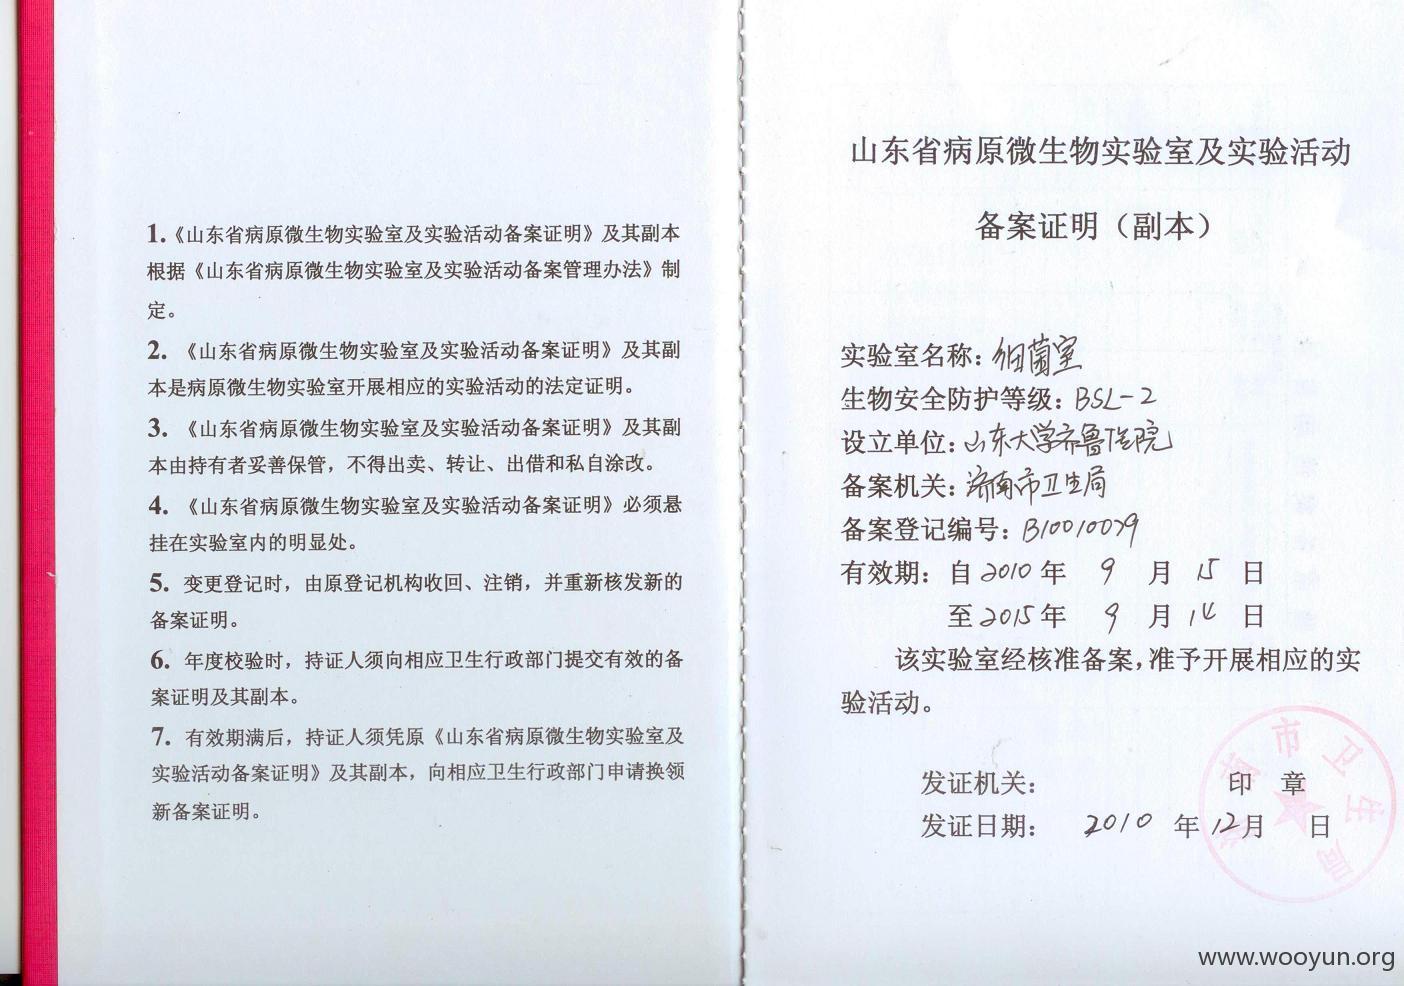 1.《山东省病原微生物实验室及实验活动备案证明》及其副本
根据《山东省病原微生物实验室及实验活动备案管理办法》制
定。
2.《山东省病原微生物实验室及实验活动备案证明》及其副
本是病原微生物实验室开展相应的实验活动的法定证明。
3.《山东省病原微生物实验室及实验活动备案证明》及其副
本由持有者妥善保管，不得出卖、转让、出借和私自涂改。
4.《山东省病原微生物实验室及实验活动备案证明》必须悬
挂在实验室内的明显处。
5. 变更登记时，由原登记机构收回、注销，并重新核发新的
备案证明。
6. 年度校验时，持证人须向相应卫生行政部门提交有效的备
案证明及其副本。
7. 有效期满后，持证人须凭原《山东省病原微生物实验室及
实验活动备案证明》及其副本，向相应卫生行政部门申请换领
新备案证明。
山东省病原微生物实验室及实验活动
备案证明（副本）
实验室名称：细菌室
生物安全防护等级：BSL-2
设立单位：山东大学齐鲁医院
备案机关：济南市卫生局
备案登记编号：B10010079
有效期：自2010年 9 月 15 日
至2015年 9 月 14 日
该实验室经核准备案，准予开展相应的实
验活动。
发证机关： 印 章
发证日期： 2010 年12月 日
济南市卫生局
www.wooyun.org